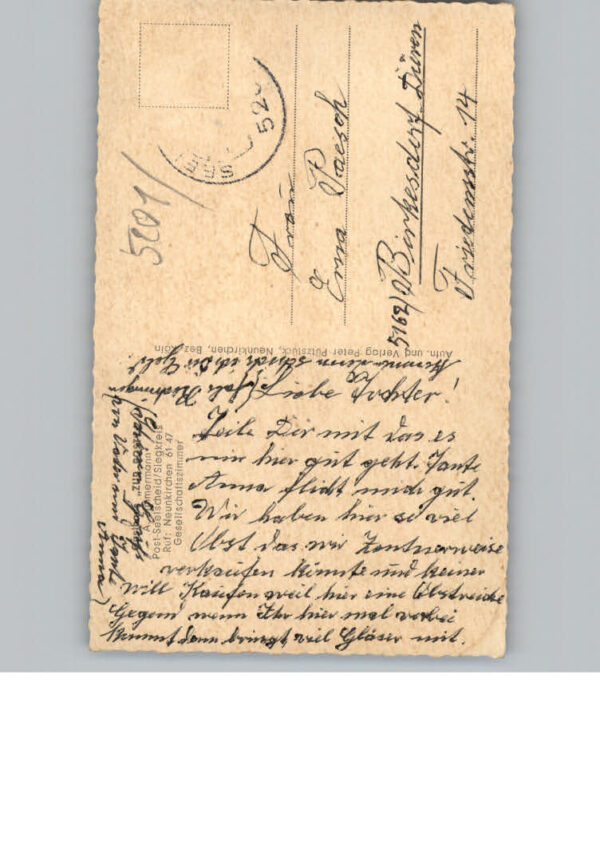 Liebe Tochter!
Teile Dir mit das es
mir hier gut geht. Tante
Anna flickt mich gut.
Wir haben hier so viel
Obst das wir Zentnerweise
verkaufen könnte und keiner
will Kaufen weil hier eine Obstreiche
Gegend wenn Ihr hier mal vorbei
kommt dann bringt viel Gläser mit.
von Vater und Tante
Anna
A. Zimmermann
Post Seelscheid/Siegkreis
Ruf: Neunkirchen 61 47
Gesellschaftszimmer
Aufn. und Verlag Peter Pützstück, Neunkirchen, Bez. Köln
Frau
Erna Paesch
(5162) Birkesdorf Düren
Friedenstr. 14
5201
SEEL
52